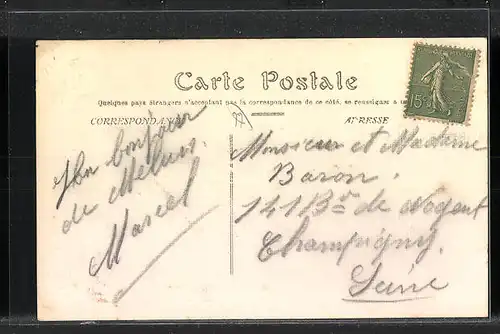 Carte Postale
Quelques pays étrangers n'acceptant pas la correspondance de ce côté, se renseigner à
CORRESPONDANCE
ADRESSE
Un bonjour
de Melun.
Marcel
Monsieur et Madame
Baron.
141 Bd de Nogent
Champigny.
Seine
15c